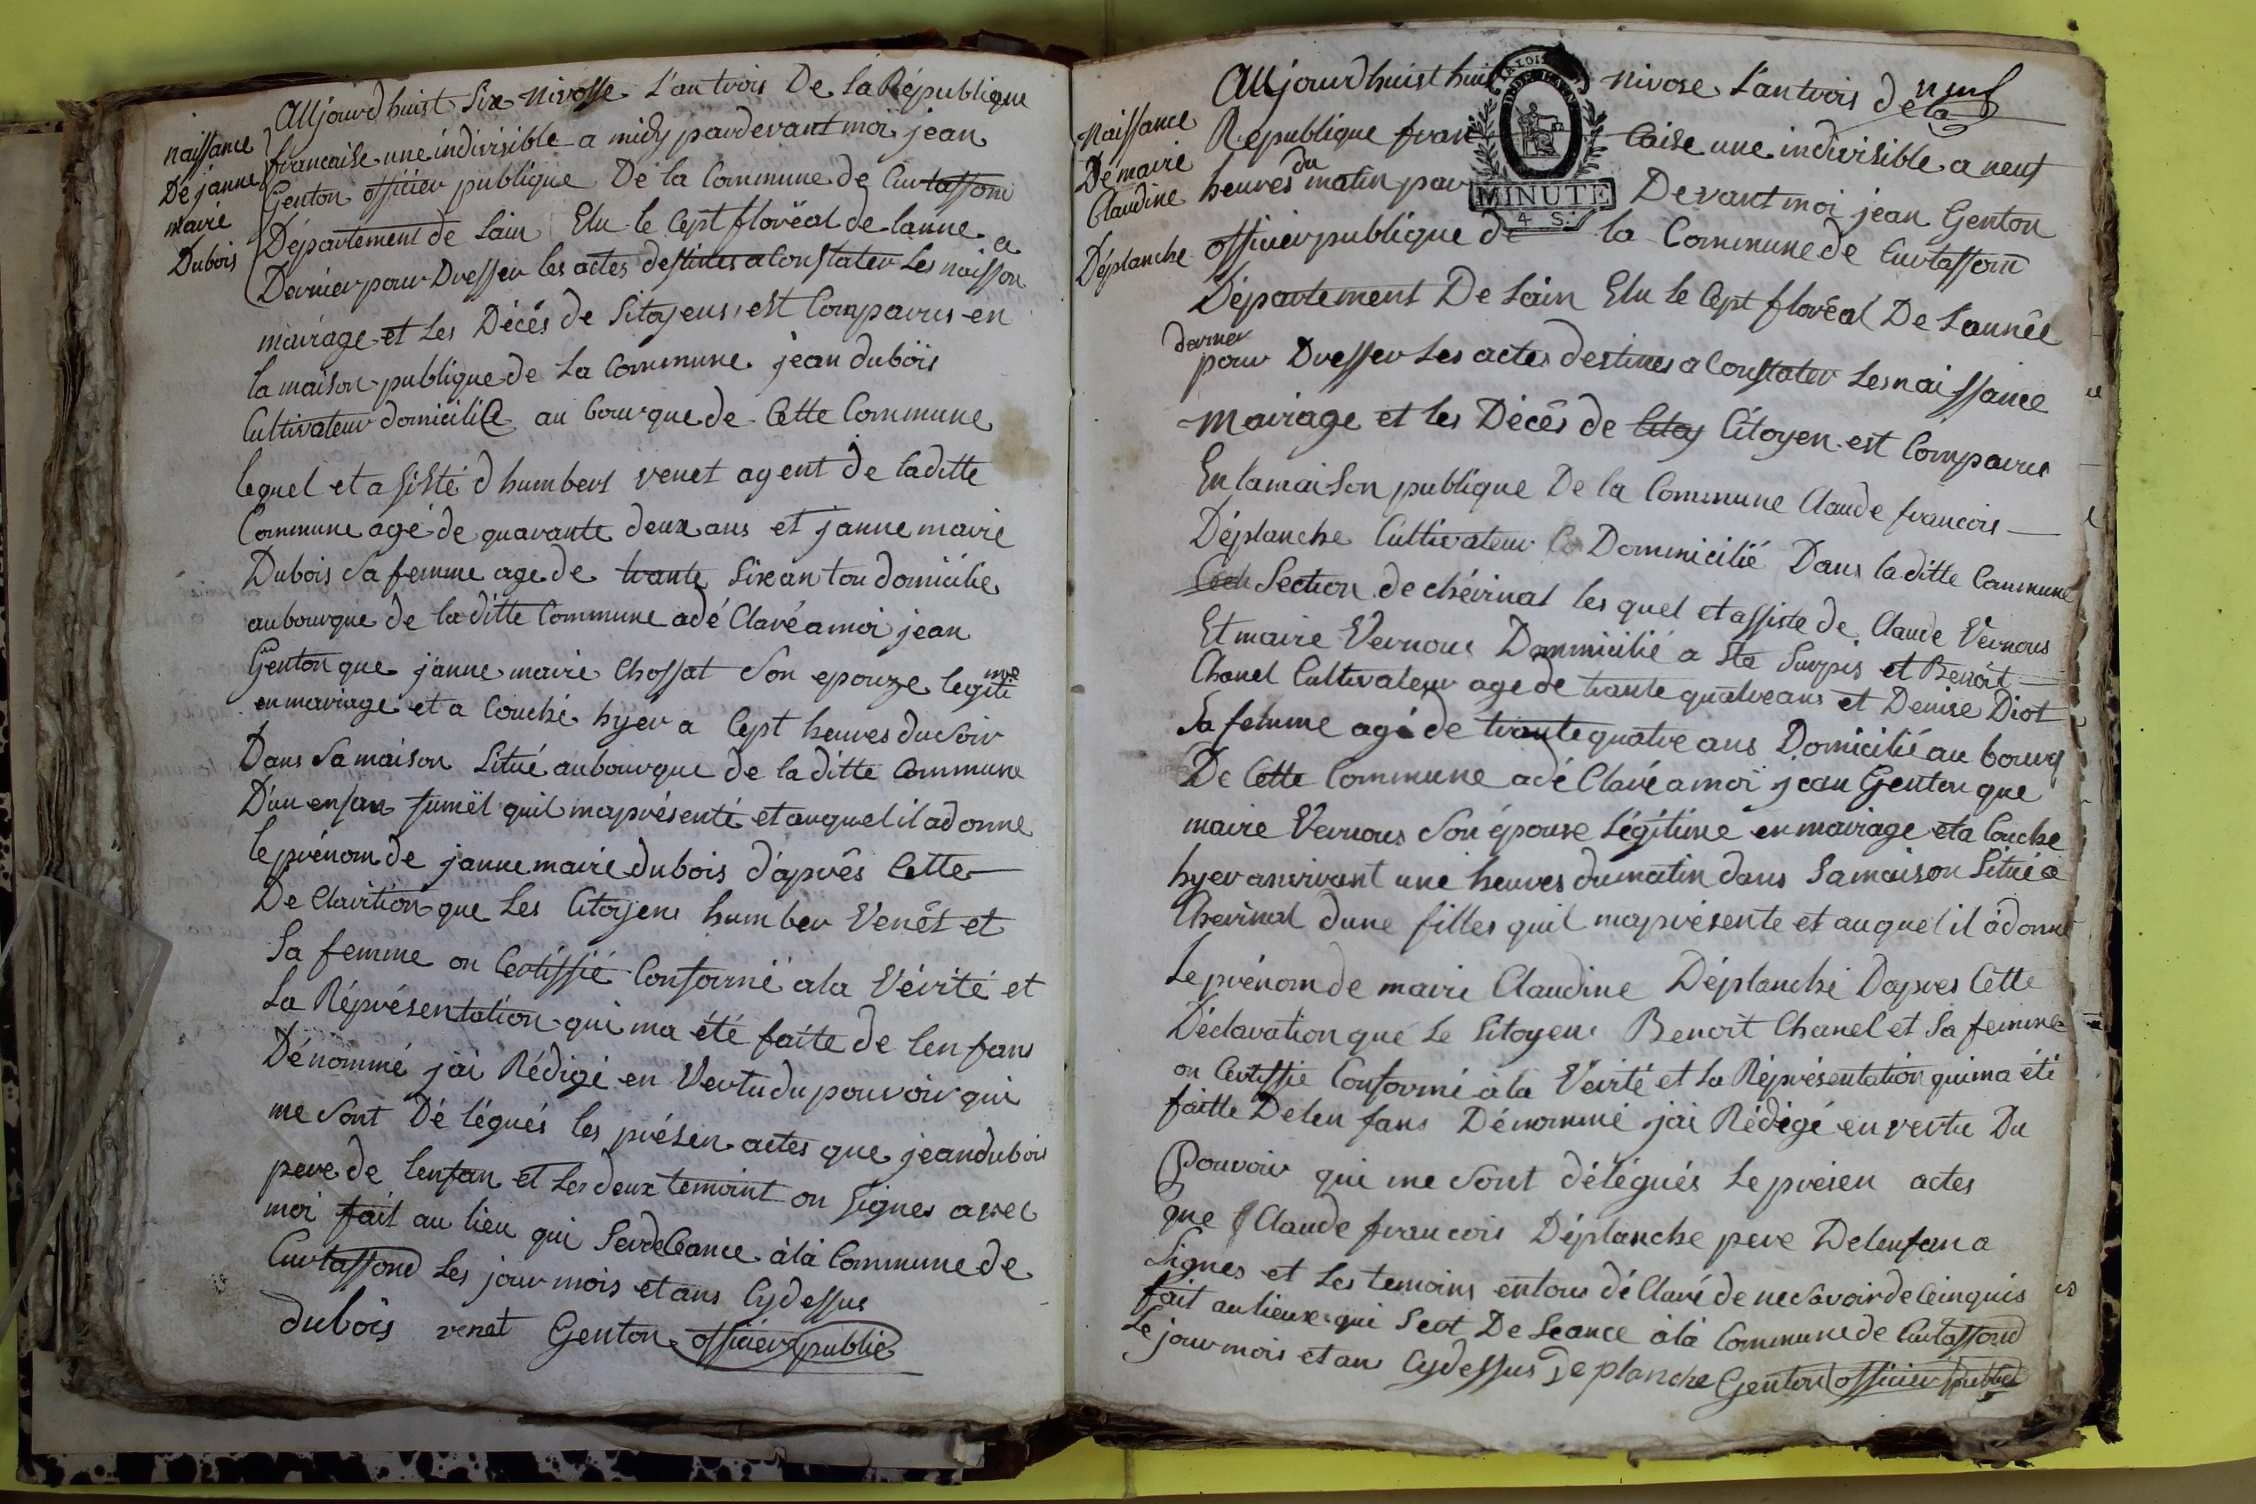 naissance
De janne
marie
Dubois
Aujourdhuist Six nivosse L'an trois De La République
francaise une indivisible a midy pardevant moi jean
Genton officier publique De la Commune de Curtassond
Département de Lain Elu le Cept floréal de lanne
Dernier pour Dresser les actes destinés a Constater Les naissan
mairage et Les Décés de Sitoyens est Comparus en
la maison publique de La Commune jean duboïs
Cultivateur domicilié au bourque de Cette Commune
lequel et a sisté d humbert venet agent de laditte
Commune agé de quarante deux ans et janne marie
Dubois Sa femme age de trante Six an tou domicilie
au bourque de la ditte Commune adé Claré a moi jean
Genton que janne marie Chossat Son epouze legiti me
en mariage et a Couché hyer a Cept heures du Soir
Dans Sa maison Litué au bourque de la ditte Commune
D'un enfan fumël quil ma présenté et auquel il a donne
le prénom de janne marie dubois d'aprês Cette
De Clairtion que Les Citoyens humber Venêt et
Sa femme on Certiffié Conformé a la Vérité et
La Réprésentation qui ma été faite de lenfans
Dénommé jai Rédigé en Vertu du pouvoir qui
me Sont Dé légués les présen actes que jean dubois
pere de lenfan et Les deux temoint on Signes avec
moi fait au lieu qui Serde Ceance à la Commune de
Curtassond Les jour mois et ans Cydessus
dubois venet Genton officier public
neuf
naissance
De marie
Claudine
Déplanche
LA LOI
MINUTE
4 S.
Aujourdhuist huit nivose L'an trois de la
Republique fran Caise une indivisible a neuf
heures du matin par Devant moi jean Genton
officier publique de la Commune de Curtassond
Département De Lain Elu le Cept floréal De L'année
dernier
pour Dresser Les actes destinés a Constater Les nai ssance
mairage et les Décês de Citoy Citoyen est Comparus
En la maison publique De la Commune Claude francois
Déplanche Cultivateur Dommicilié Dans laditte Commune
Section de chévinal les quel et assiste de Claude Vernous
Et marie Vernous Dommicilié a Ste Surpis et Benoît
Chanel Cultivateur age de trante quatre ans et Denise Diot
Sa femme agé de trante quatre ans Domicilié au bourq
De Cette Commune adé Claré a moi jean Genton que
marie Vernous Son épouse Légitime en mairage et a Couche
hyer anvivant une heures du matin dans Sa maison Litué a
Chevinal dune filles quil ma présente et au quel il a donné
Le prénom de marie Claudine Déplanche D'apres Cette
Déclaration que Le Sitoyens Benoit Chanel et Sa femme
on Certiffie Conformé à la Vérité et La Réprésentation qui ma été
faitte De len fans Dénommé jai Rédigé en vertu Du
Pouvoir qui me Sont délégués Le présen actes
que Claude francois Déplanche pere De lenfan a
Signes et Les temoins en tous dé Claré de ne Savoir de Ce inquis
fait au lieux qui Sert De Seance à la Commune de Curtassond
Le jour mois et an Cydessus Deplanche Genton officier public